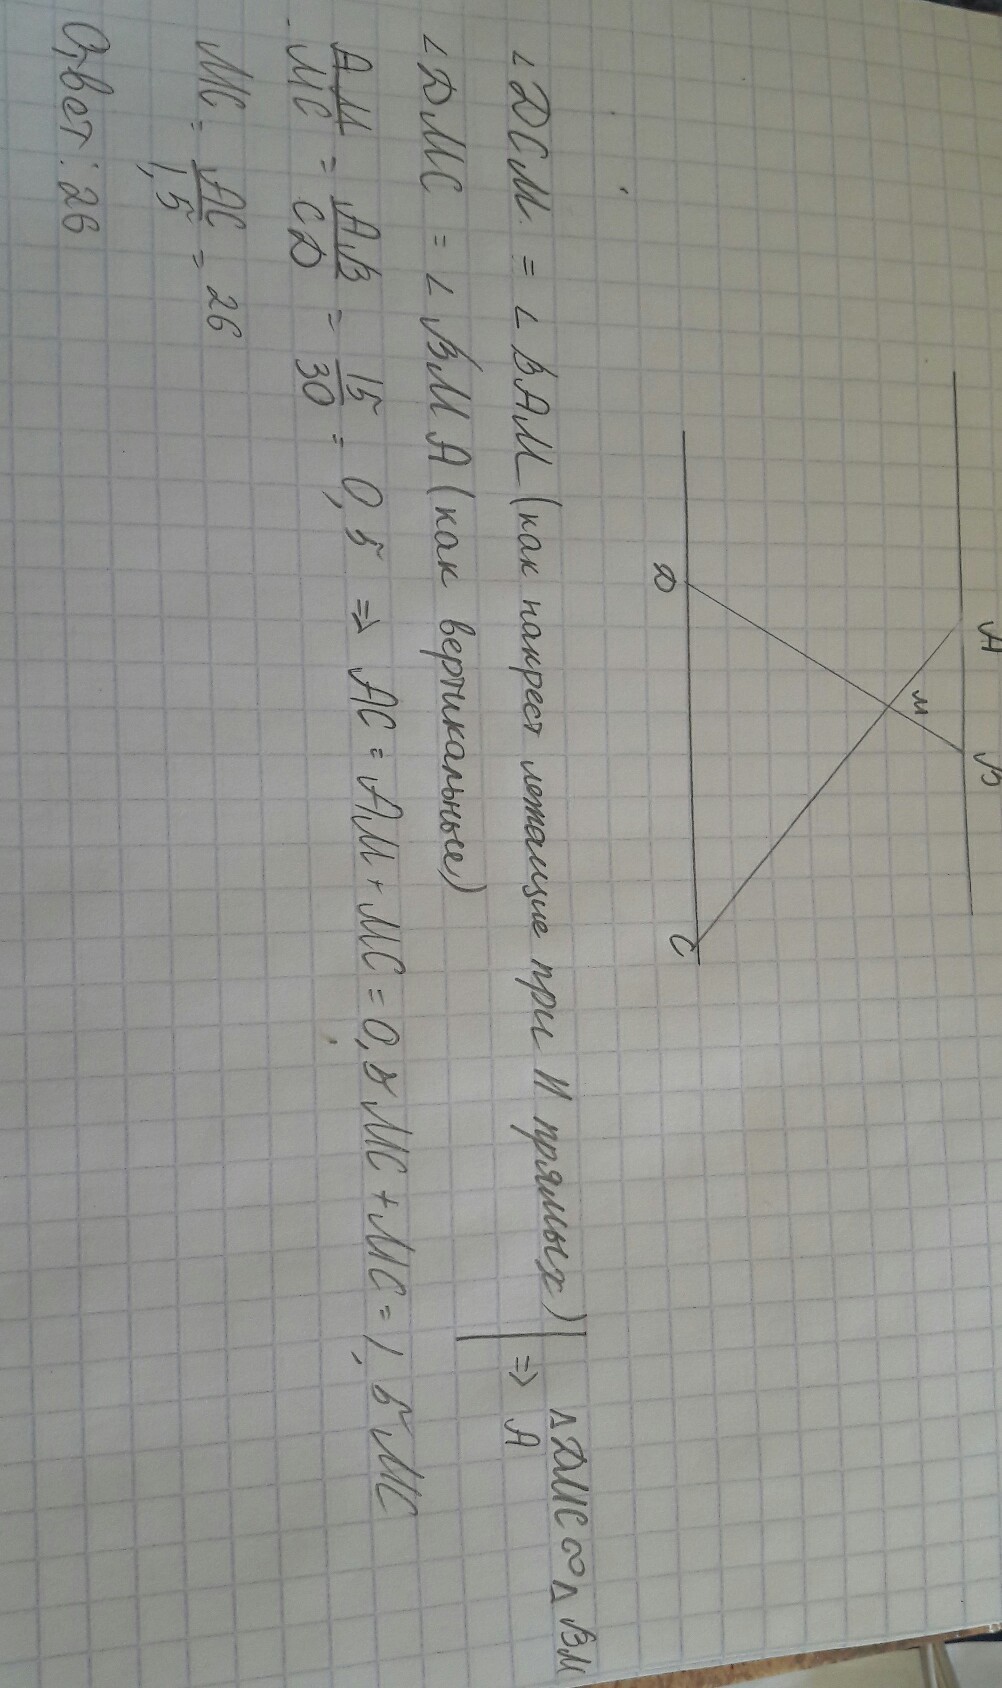 A B
M
D C
∠DCM = ∠BAM (как накрест лежащие при II прямых) | => △DMC ∞ △BM
A
∠DMC = ∠BMA (как вертикальные)
AM/MC = AB/CD = 15/30 = 0,5 => AC = AM + MC = 0,5 MC + MC = 1,5 MC
MC = AC/1,5 = 26
Ответ: 26